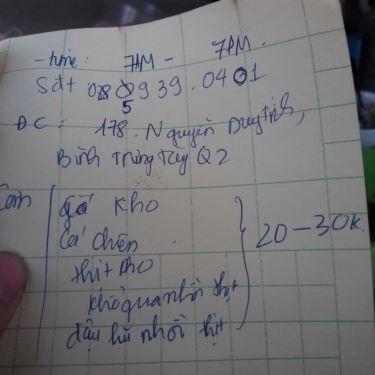 - time: 7AM - 7PM.
Sđt 0285939.0401
ĐC: 178. Nguyễn Duy Trinh,
Bình Trưng Tây Q2
Cơm gà kho
Cá chiên
thịt kho
khổ qua nhồi thịt
đậu hũ nhồi thịt
20-30k.